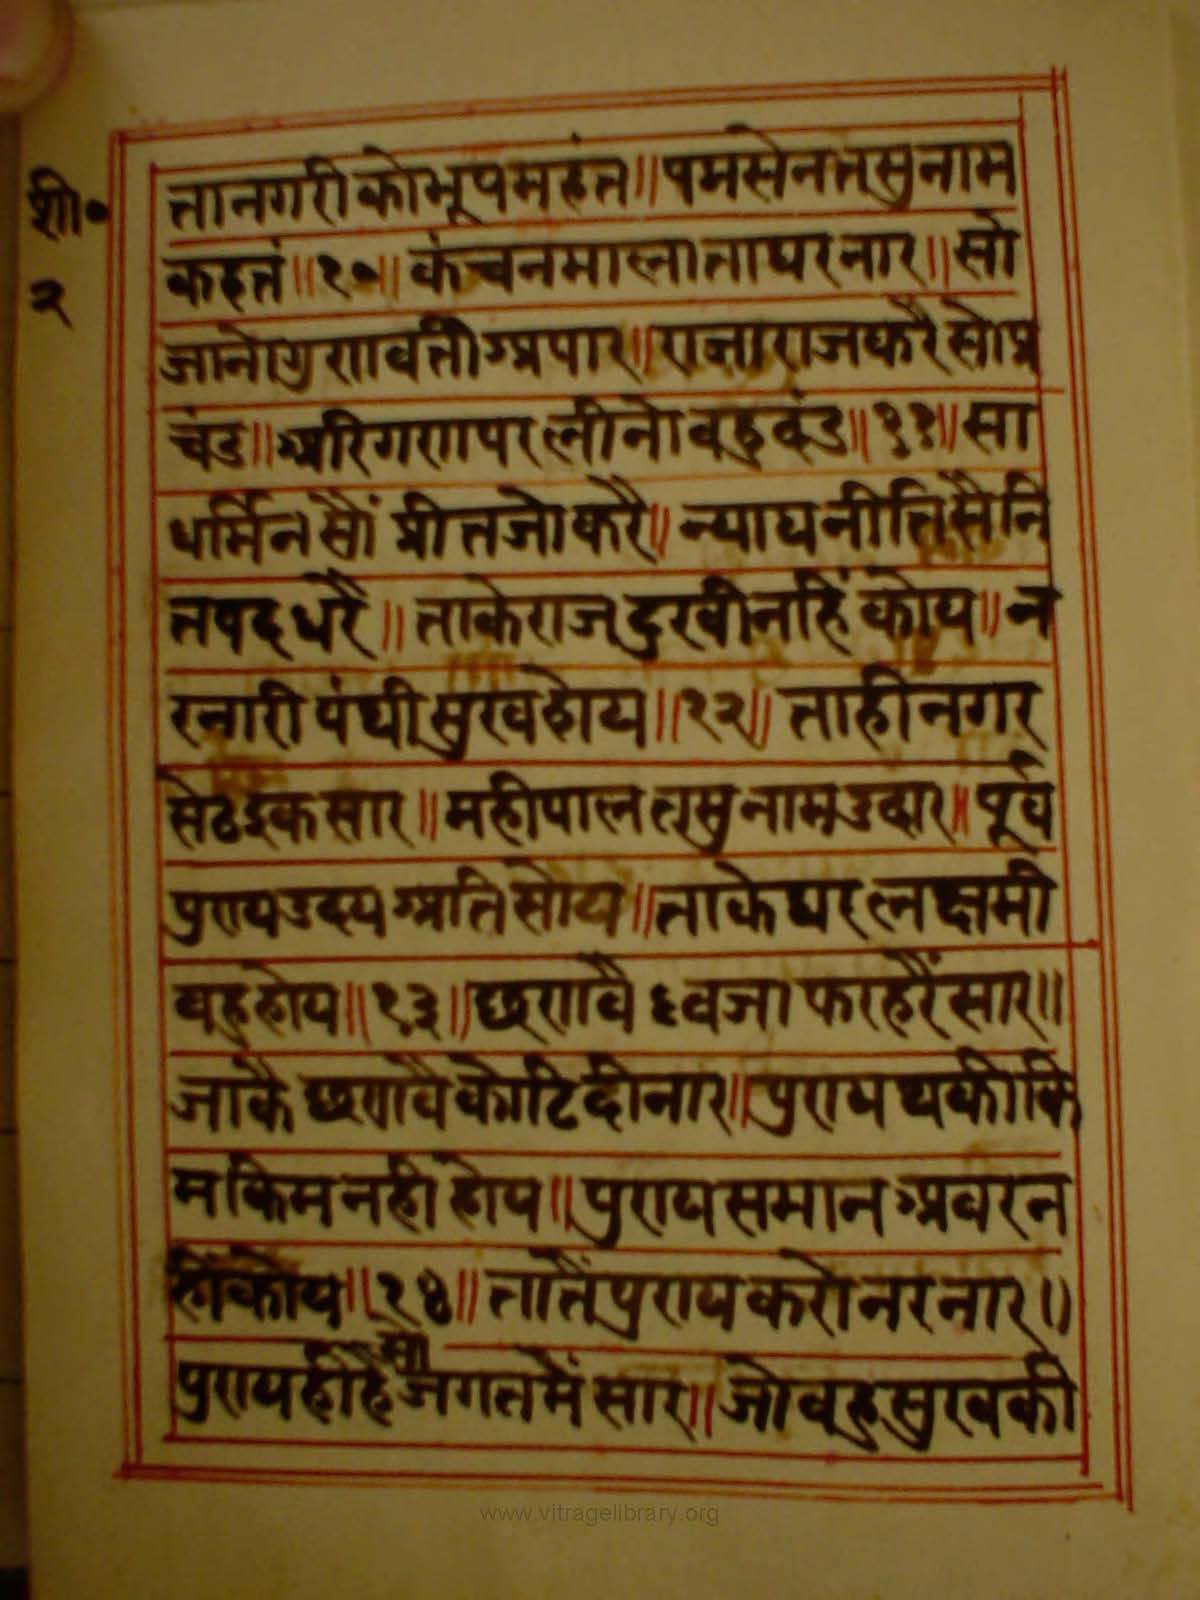 शी॰
२
ता नगरी को भूप महंत ॥ पमसेन तसु नाम
कहंत ॥ १० ॥ कंचनमाला ता घर नार ॥ सो
जानो गुणवती अपार ॥ राजा राज करै सो प्र
चंड ॥ अरिगण पर लीनो बहु दंड ॥ ११ ॥ सा
धर्मिन सौं प्रीत जो करै ॥ न्याय नीति सै नि
तपद धरै ॥ ताके राज दुखी नहिं कोय ॥ न
र नारी पंथी सुख होय ॥ १२ ॥ ताही नगर
सेठ इक सार ॥ महीपाल तसु नाम उदार ॥ पूर्व
पुण्य उदय अति सोय ॥ ताके घर लक्षमी
बहु होय ॥ १३ ॥ छणवै ध्वजा फरहरैं सार ॥
जाकै छणवै कोटि दीनार ॥ पुण्य थकी कि
म किम नही होय ॥ पुण्य समान अवर न
हिं कोय ॥ १४ ॥ तातैं पुण्य करो नर नार ॥
पुण्य ही है सो जगत मैं सार ॥ जो बहु सुख की
www.vitragelibrary.org